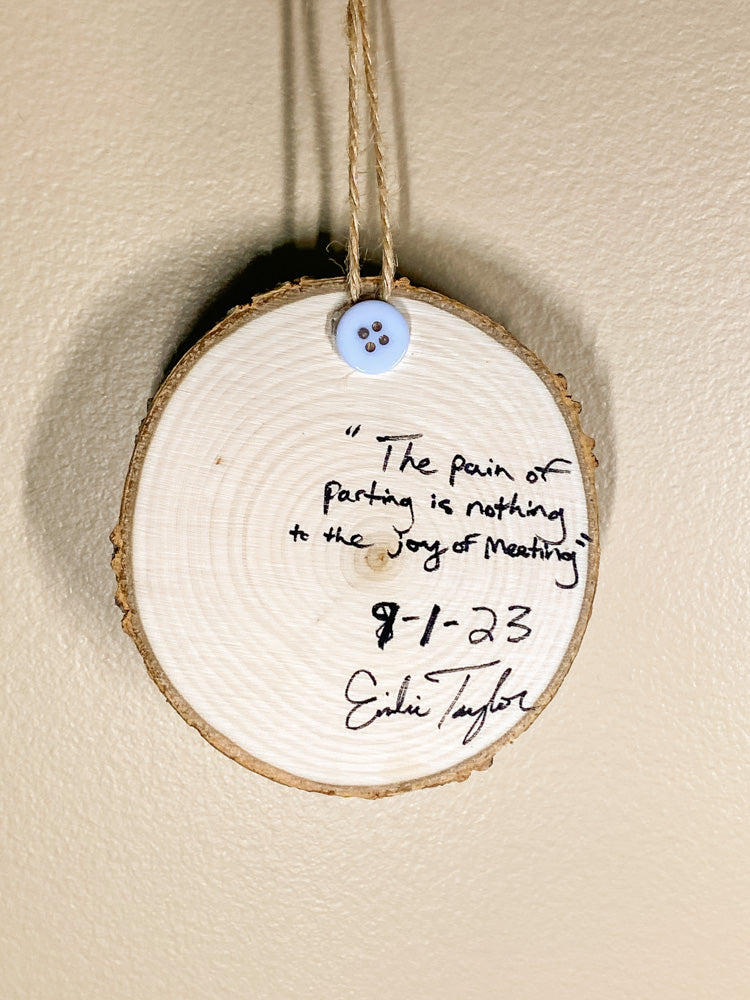 "The pain of
parting is nothing
to the joy of Meeting"
9-1-23
Emilie Taylor